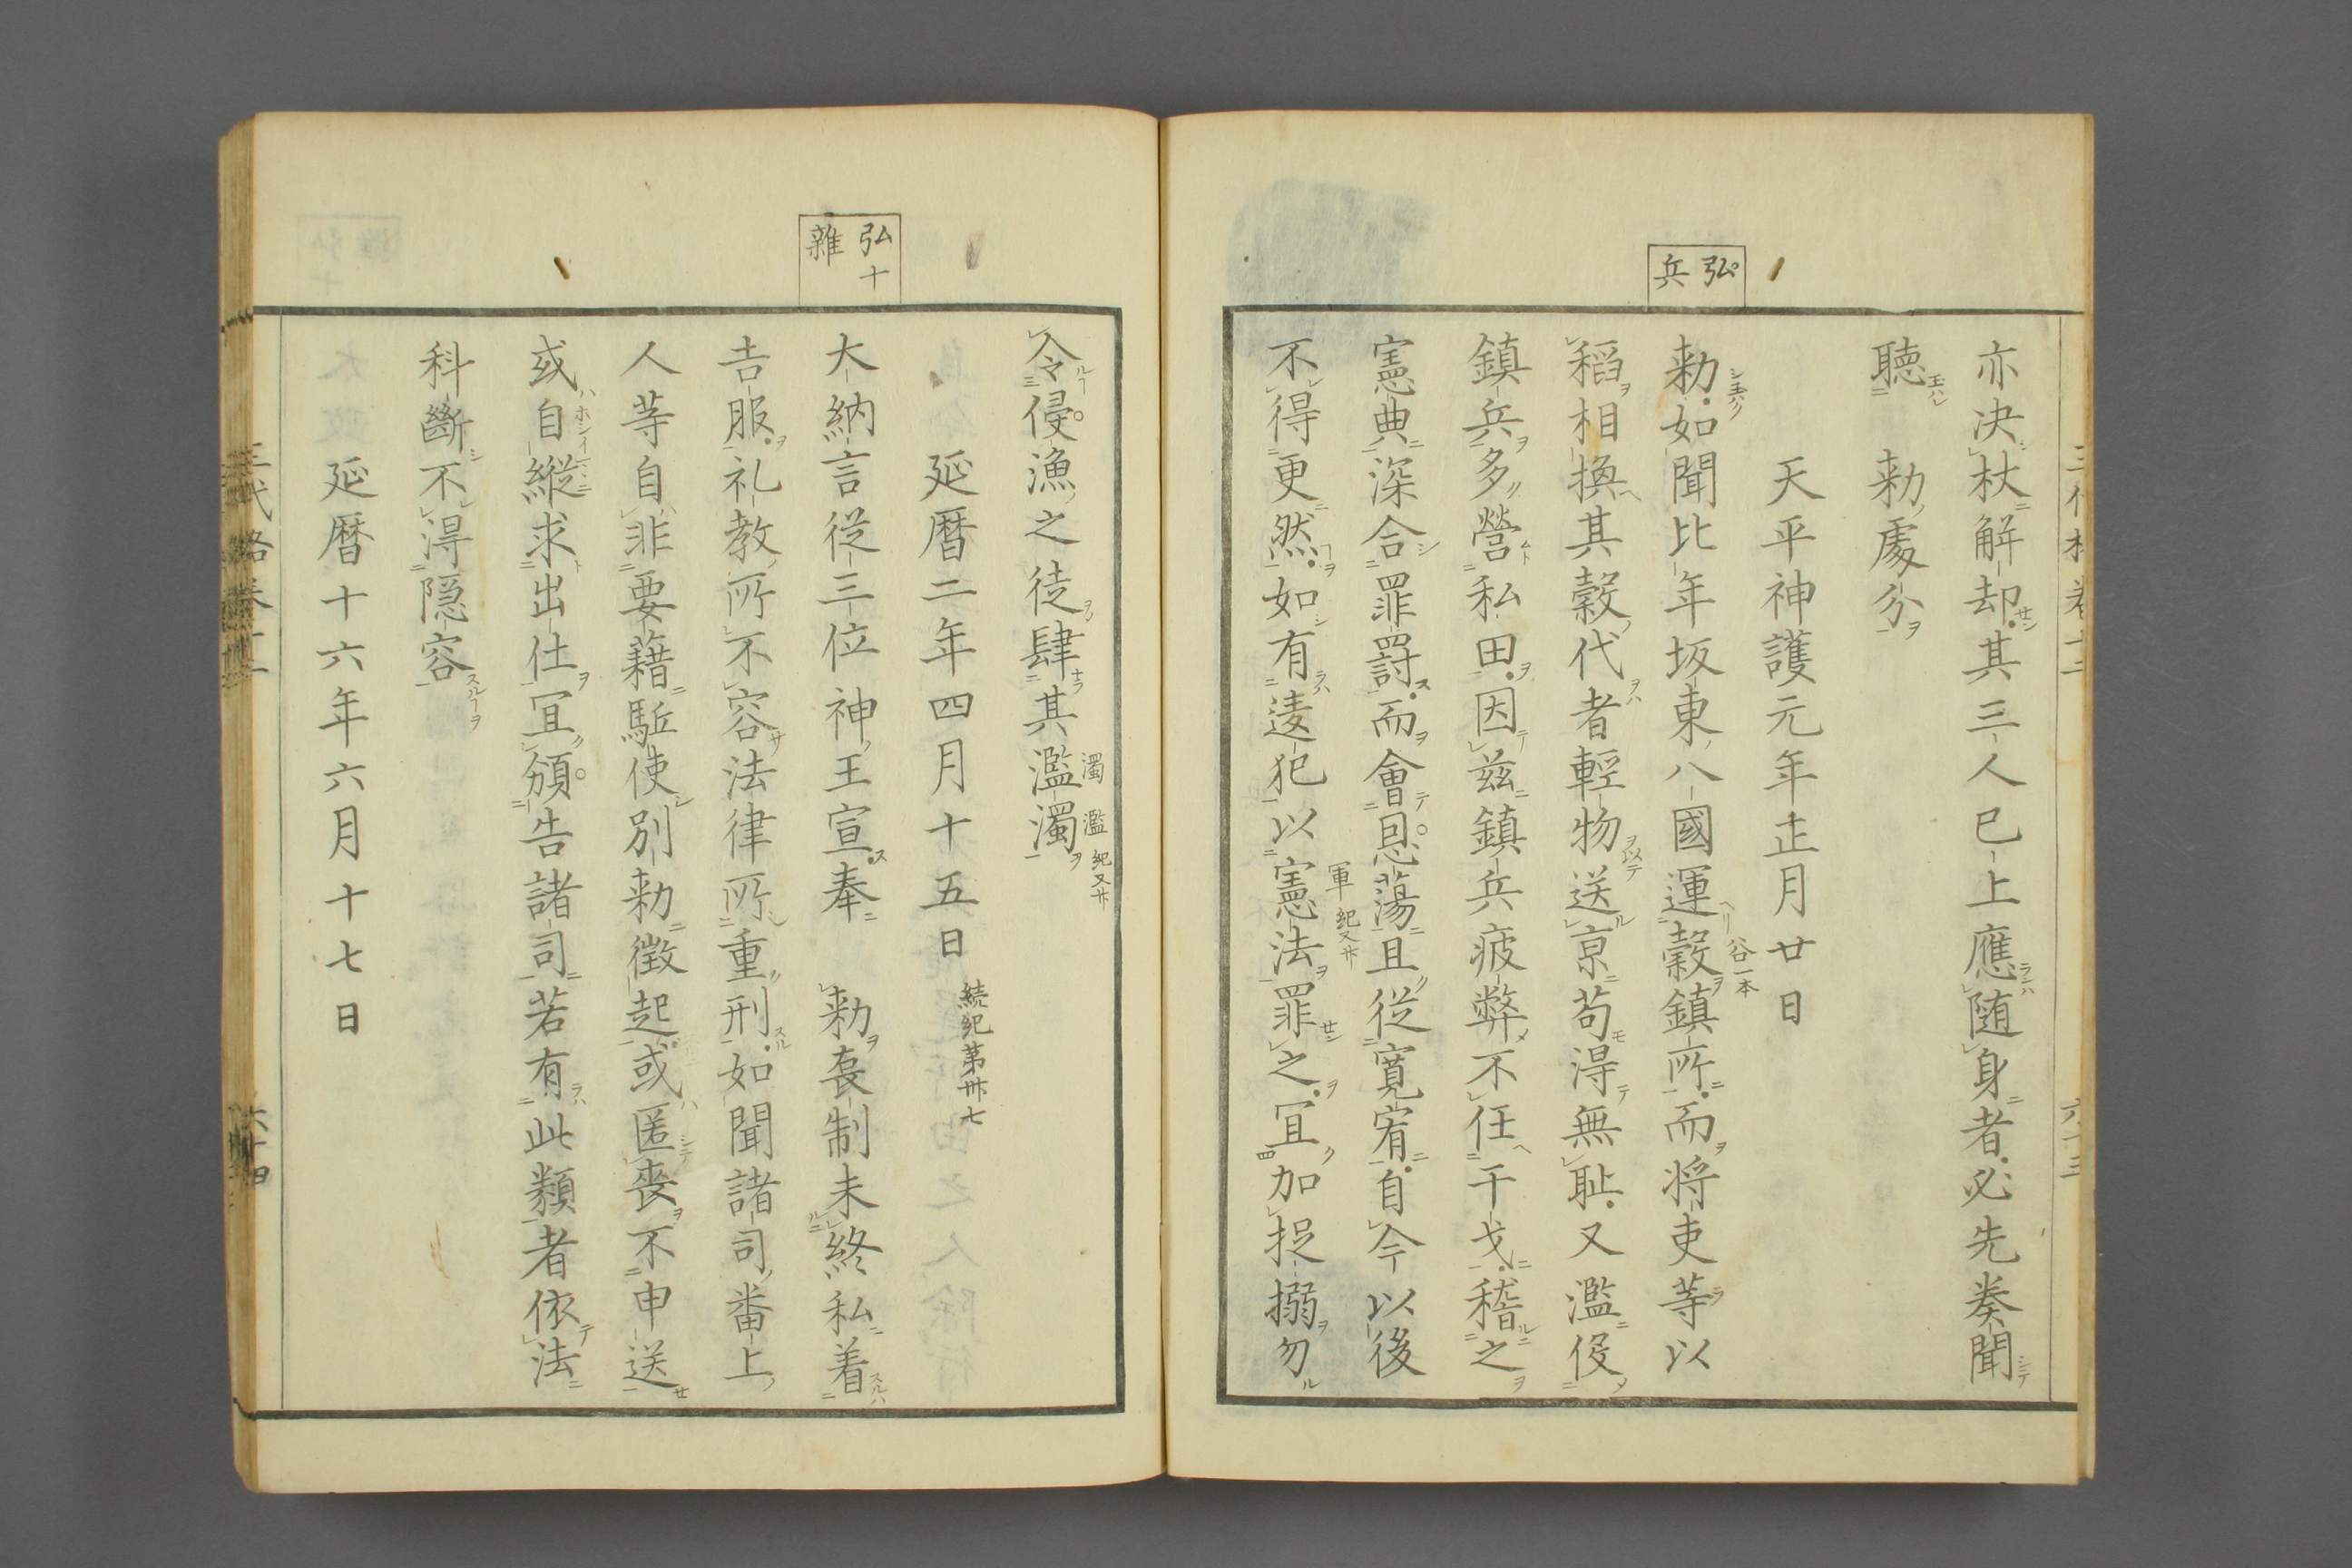 弘
兵
亦决杖解却其三人已上應随身者必先奏聞
聴　勅處分
天平神護元年正月廿日
勅如聞比年坂東八國運穀鎮所而将吏等以
谷一本
稻相換其穀代者輕物送京苟得無耻又濫役
鎮兵多營私田因茲鎮兵疲弊不任干戈稽之
憲典深合罪罸而會恩蕩且從寛宥自今以後
軍紀又廾
不得更然如有逺犯以憲法罪之冝加捉搦勿
令侵漁之徒肆其濫濁
濁濫紀又廾
延暦二年四月十五日
続紀第卅七
弘十
雜
大納言従三位神王宣奉　勅喪制未終私着
吉服礼教所不容法律所重刑如聞諸司番上
人等自非要藉駈使別勅徴起或匿喪不申送
或自縦求出仕冝頒告諸司若有此類者依法
科斷不得隠容
延暦十六年六月十七日